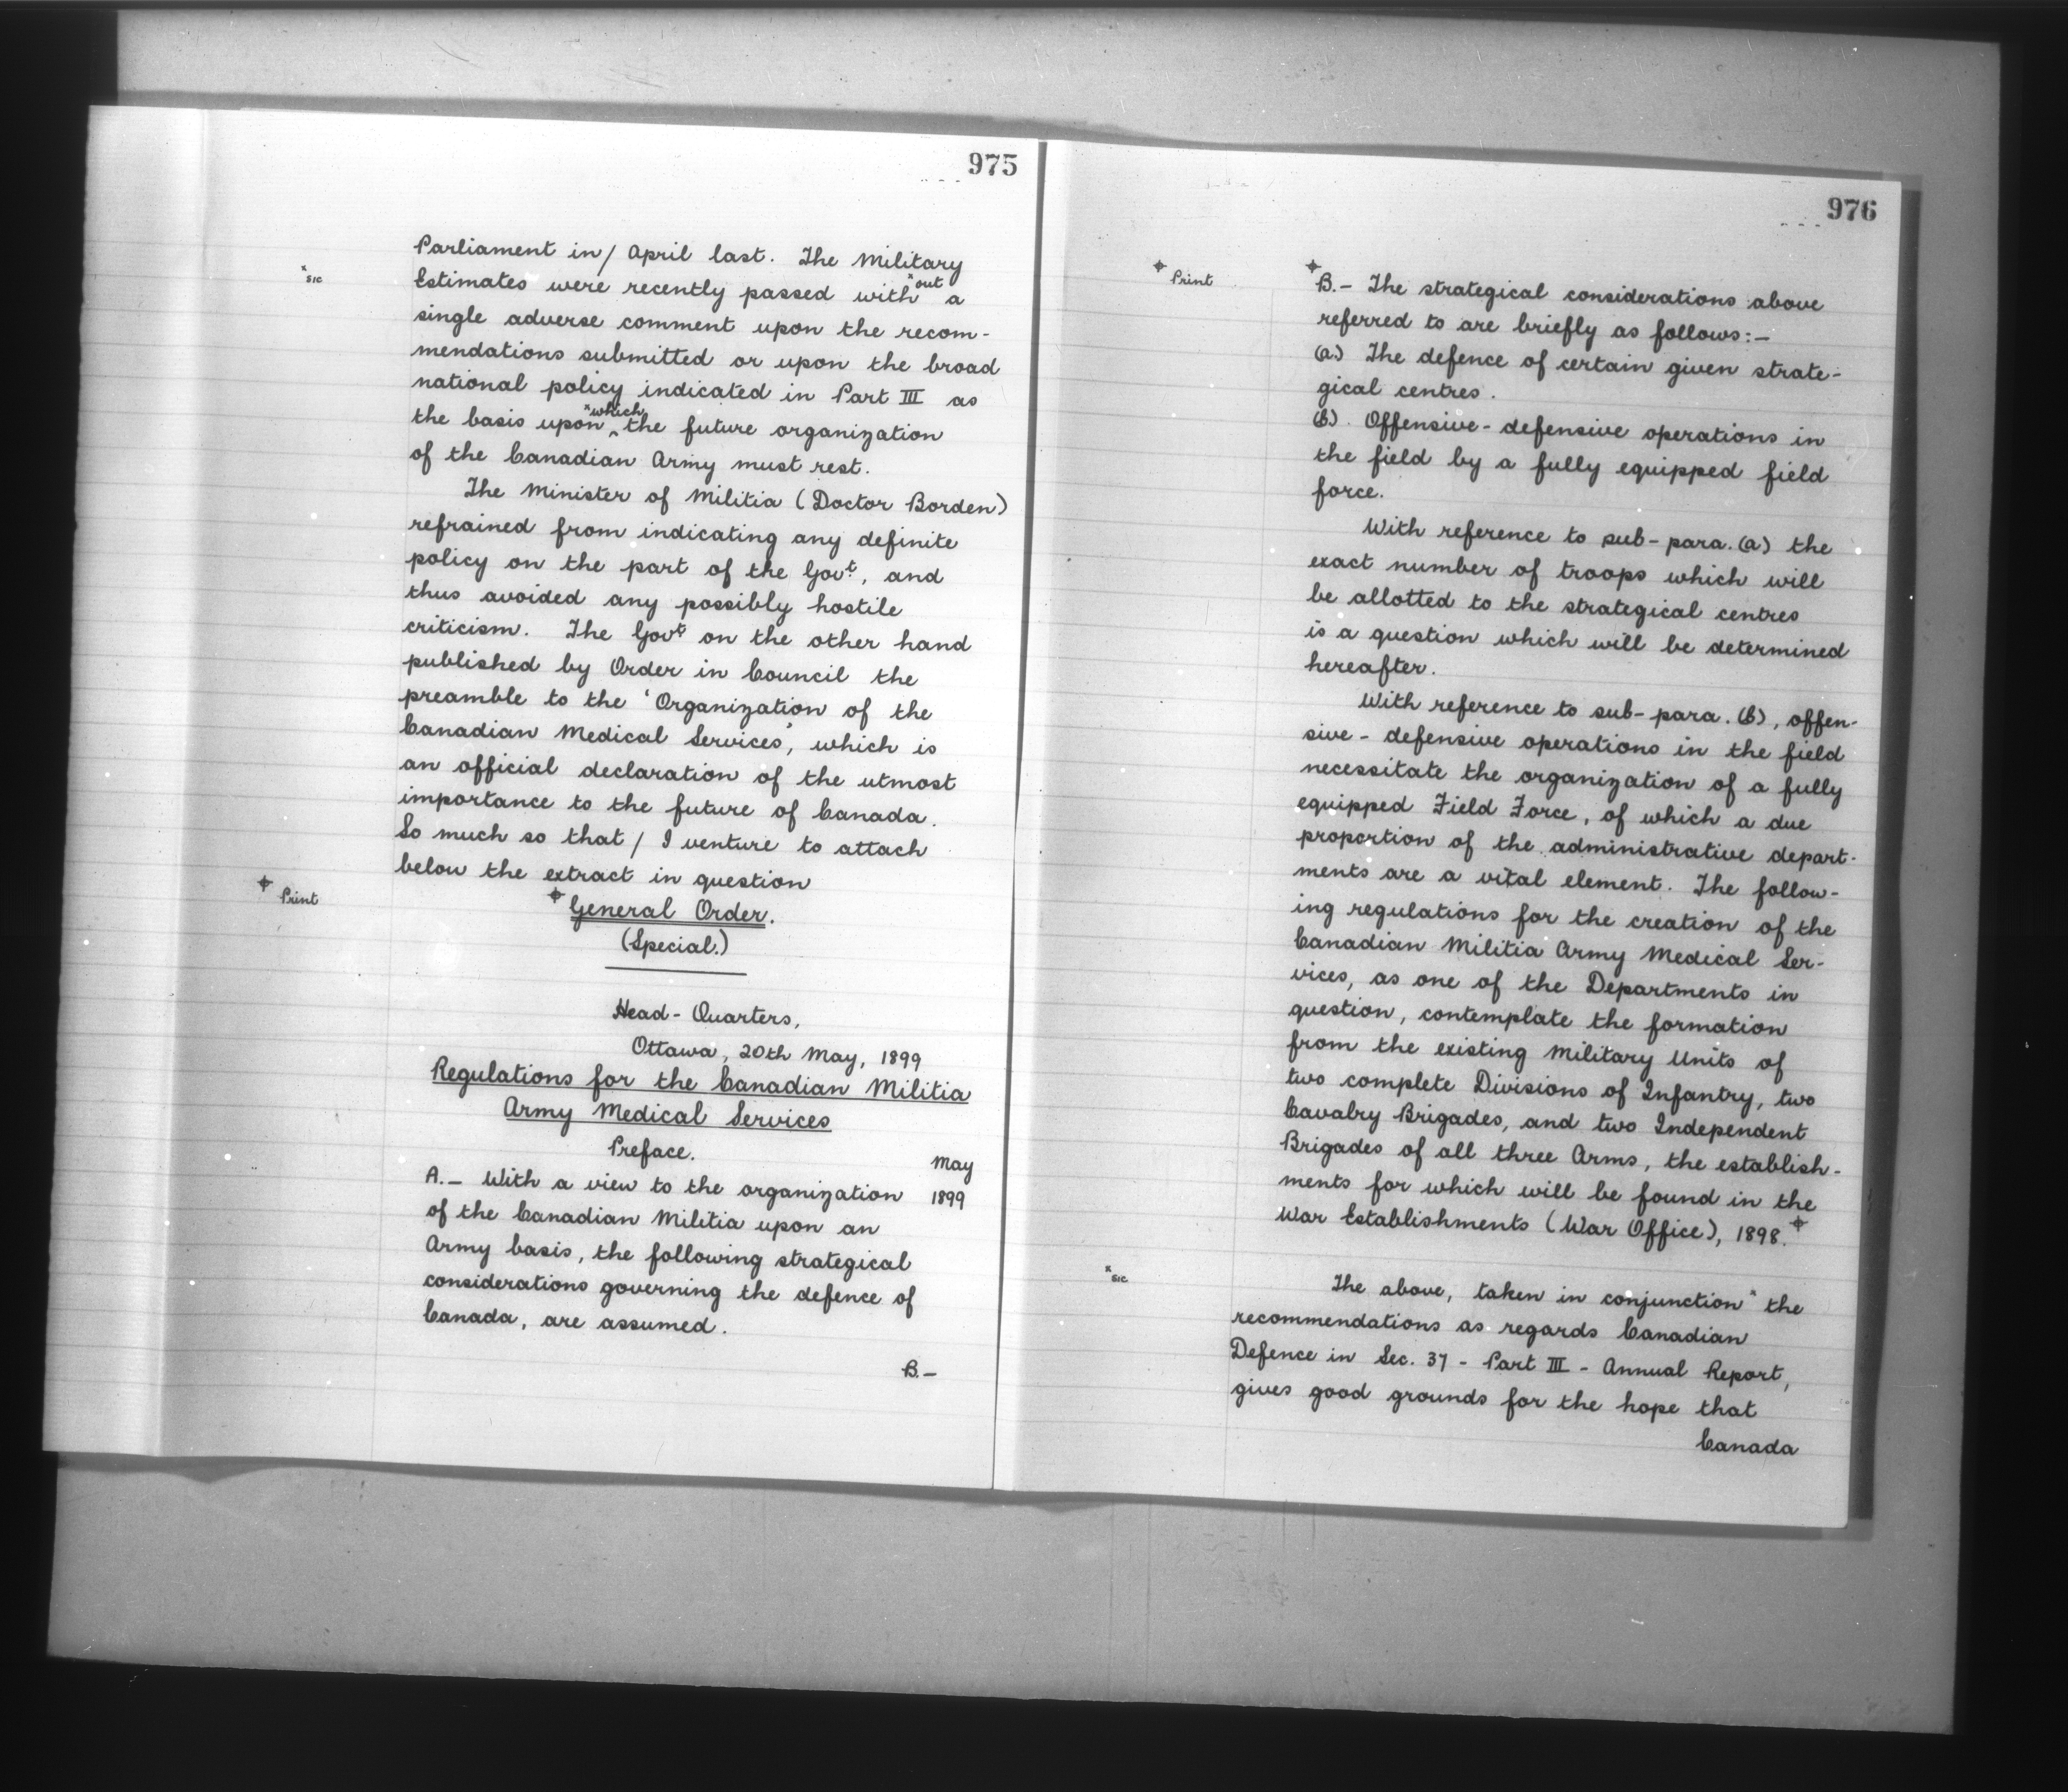 975
Parliament in/ April last. The Military
x sic
Estimates were recently passed with xout a
single adverse comment upon the recom-
mendations submitted or upon the broad
national policy indicated in Part III as
the basis upon ^ xwhich the future organization
of the Canadian Army must rest.
The Minister of Militia (Doctor Borden)
refrained from indicating any definite
policy on the part of the Govt., and
thus avoided any possibly hostile
criticism. The Govt. on the other hand
published by Order in Council the
preamble to the 'Organization of the
Canadian Medical Services', which is
an official declaration of the utmost
importance to the future of Canada.
So much so that / I venture to attach
below the extract in question
⌖ Print
⌖ General Order.
(Special.)
Head-Quarters,
Ottawa, 20th May, 1899
Regulations for the Canadian Militia
Army Medical Services
Preface.
May
1899
A.— With a view to the organization
of the Canadian Militia upon an
Army basis, the following strategical
considerations governing the defence of
Canada, are assumed.
B.—
976
⌖ Print
⌖
B.— The strategical considerations above
referred to are briefly as follows:—
(a.) The defence of certain given strate-
gical centres.
(b). Offensive-defensive operations in
the field by a fully equipped field
force.
With reference to sub-para. (a) the
exact number of troops which will
be allotted to the strategical centres
is a question which will be determined
hereafter.
With reference to sub-para. (b), offen-
sive-defensive operations in the field
necessitate the organization of a fully
equipped Field Force, of which a due
proportion of the administrative depart-
ments are a vital element. The follow-
ing regulations for the creation of the
Canadian Militia Army Medical Ser-
vices, as one of the Departments in
question, contemplate the formation
from the existing Military Units of
two complete Divisions of Infantry, two
Cavalry Brigades, and two Independent
Brigades of all three Arms, the establish-
ments for which will be found in the
War Establishments (War Office), 1898. ⌖
x sic
The above, taken in conjunction x the
recommendations as regards Canadian
Defence in Sec. 37 - Part III - Annual Report,
gives good grounds for the hope that
Canada